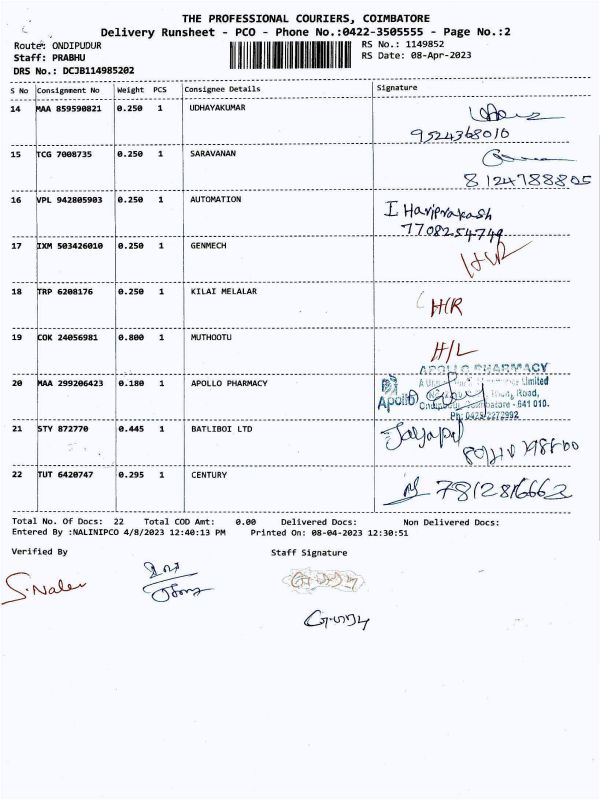 THE PROFESSIONAL COURIERS, COIMBATORE
Delivery Runsheet - PCO - Phone No.:0422-3505555 - Page No.:2
Route: ONDIPUDUR RS No.: 1149852
Staff: PRABHU RS Date: 08-Apr-2023
DRS No.: DCJB114985202
S No Consignment No Weight PCS Consignee Details Signature
14 MAA 859590821 0.250 1 UDHAYAKUMAR
9524368010
15 TCG 7008735 0.250 1 SARAVANAN
8124788805
16 VPL 942805903 0.250 1 AUTOMATION I Hariprakash
7708254749
17 IXM 503426010 0.250 1 GENMECH H/R
18 TRP 6208176 0.250 1 KILAI MELALAR H/R
19 COK 24056981 0.800 1 MUTHOOTU H/L
APOLLO PHARMACY
20 MAA 299206423 0.180 1 APOLLO PHARMACY Limited
Apollo Road,
641 010.
Ph: 0422-2272992
21 STY 872770 0.445 1 BATLIBOI LTD Jayapal
22 TUT 6420747 0.295 1 CENTURY 7812816662
Total No. Of Docs: 22 Total COD Amt: 0.00 Delivered Docs: Non Delivered Docs:
Entered By :NALINIPCO 4/8/2023 12:40:13 PM Printed On: 08-04-2023 12:30:51
Verified By Staff Signature
S.Nalini